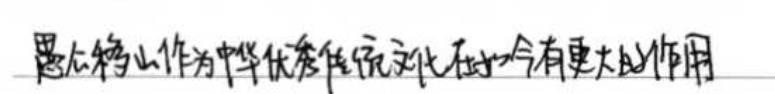 愚公移山作为中华优秀传统文化在如今有更大的作用